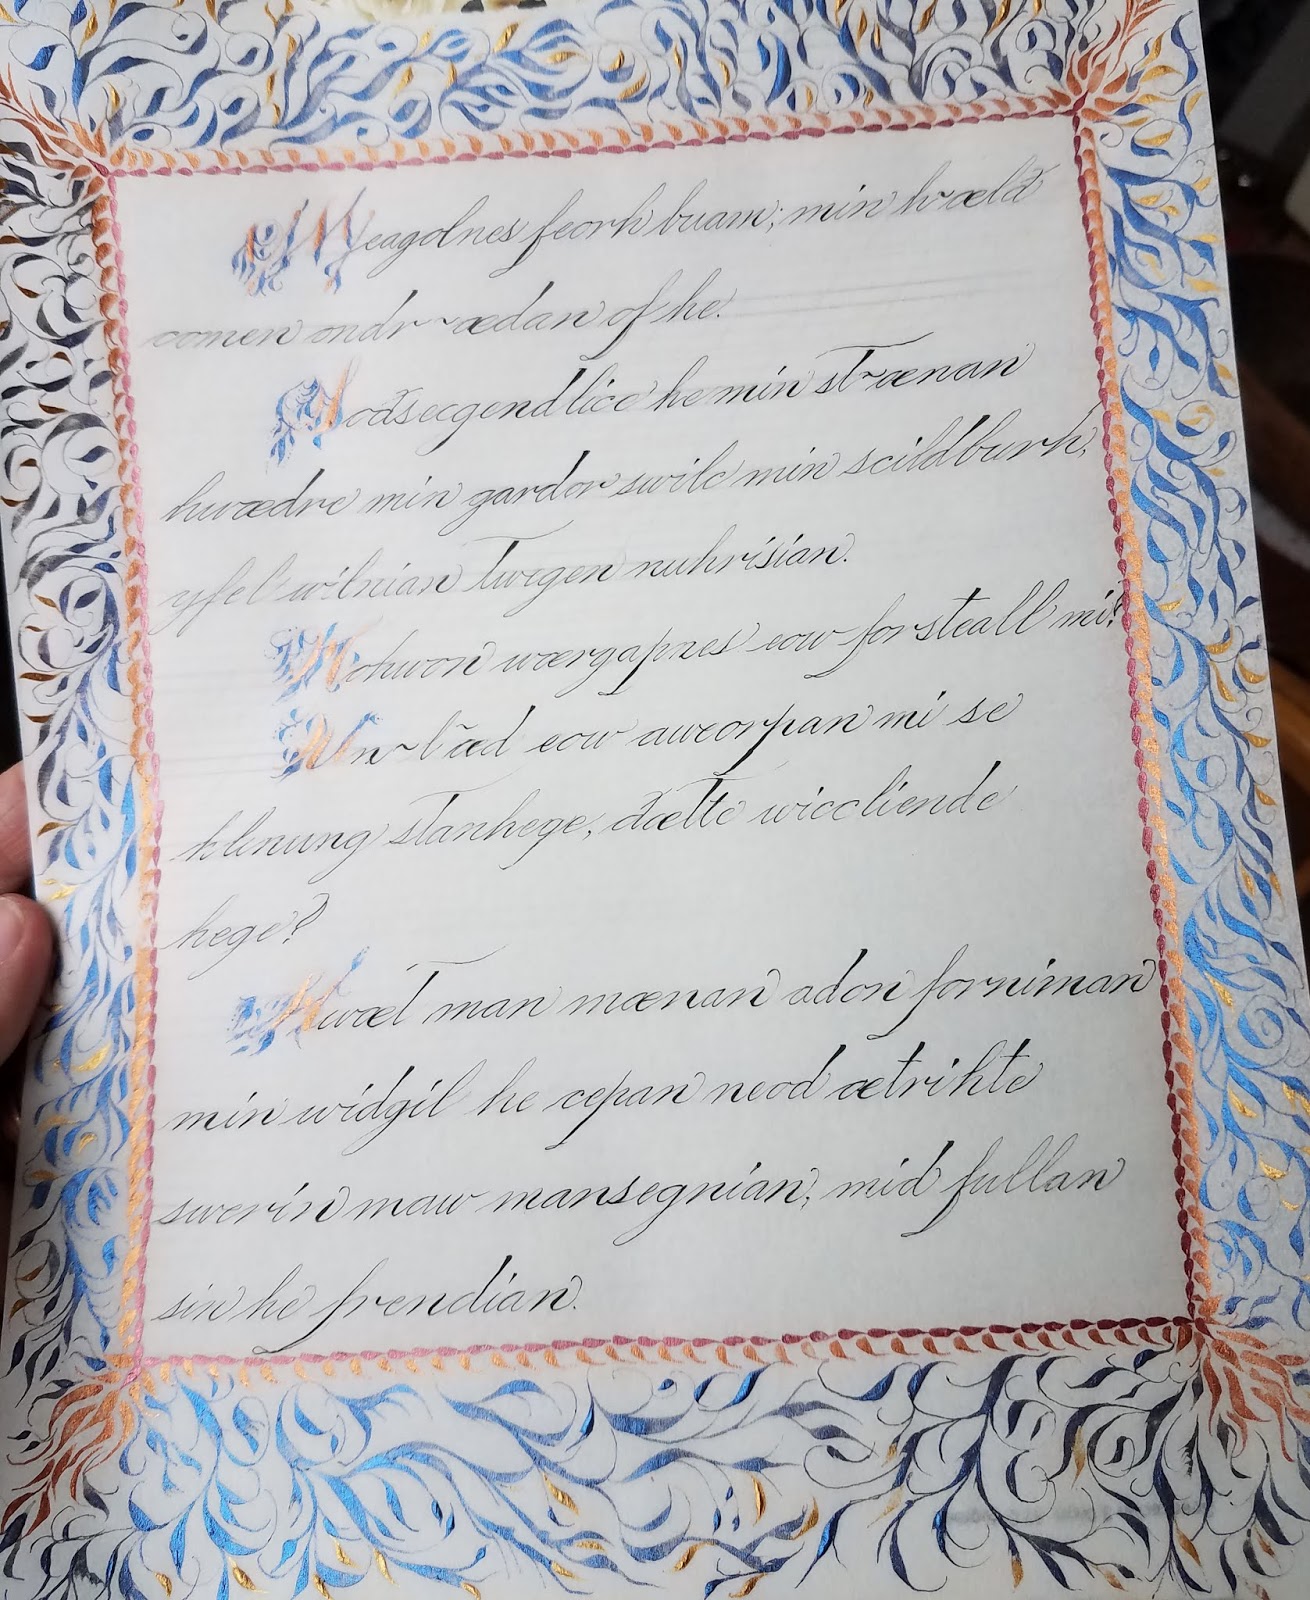 Meagolnes feorh buam; min hr~æld
comen ondr~ædan of he.
Sodsecgendlice he min st~ænan
hwædre min gardor swilc min scildburh,
yfel wilnian Twegen nuhrisian.
Nohwon wærgapnes eow forsteall mi?
Un~læd eow aweorpan mi se
klenung stanhege, dætte wiccliende
hege?
Hwæt man mænan adon forniman
min widgil he cepan neod ætrihte
swerin maw mansegnian, mid fullan
sin he frendian.